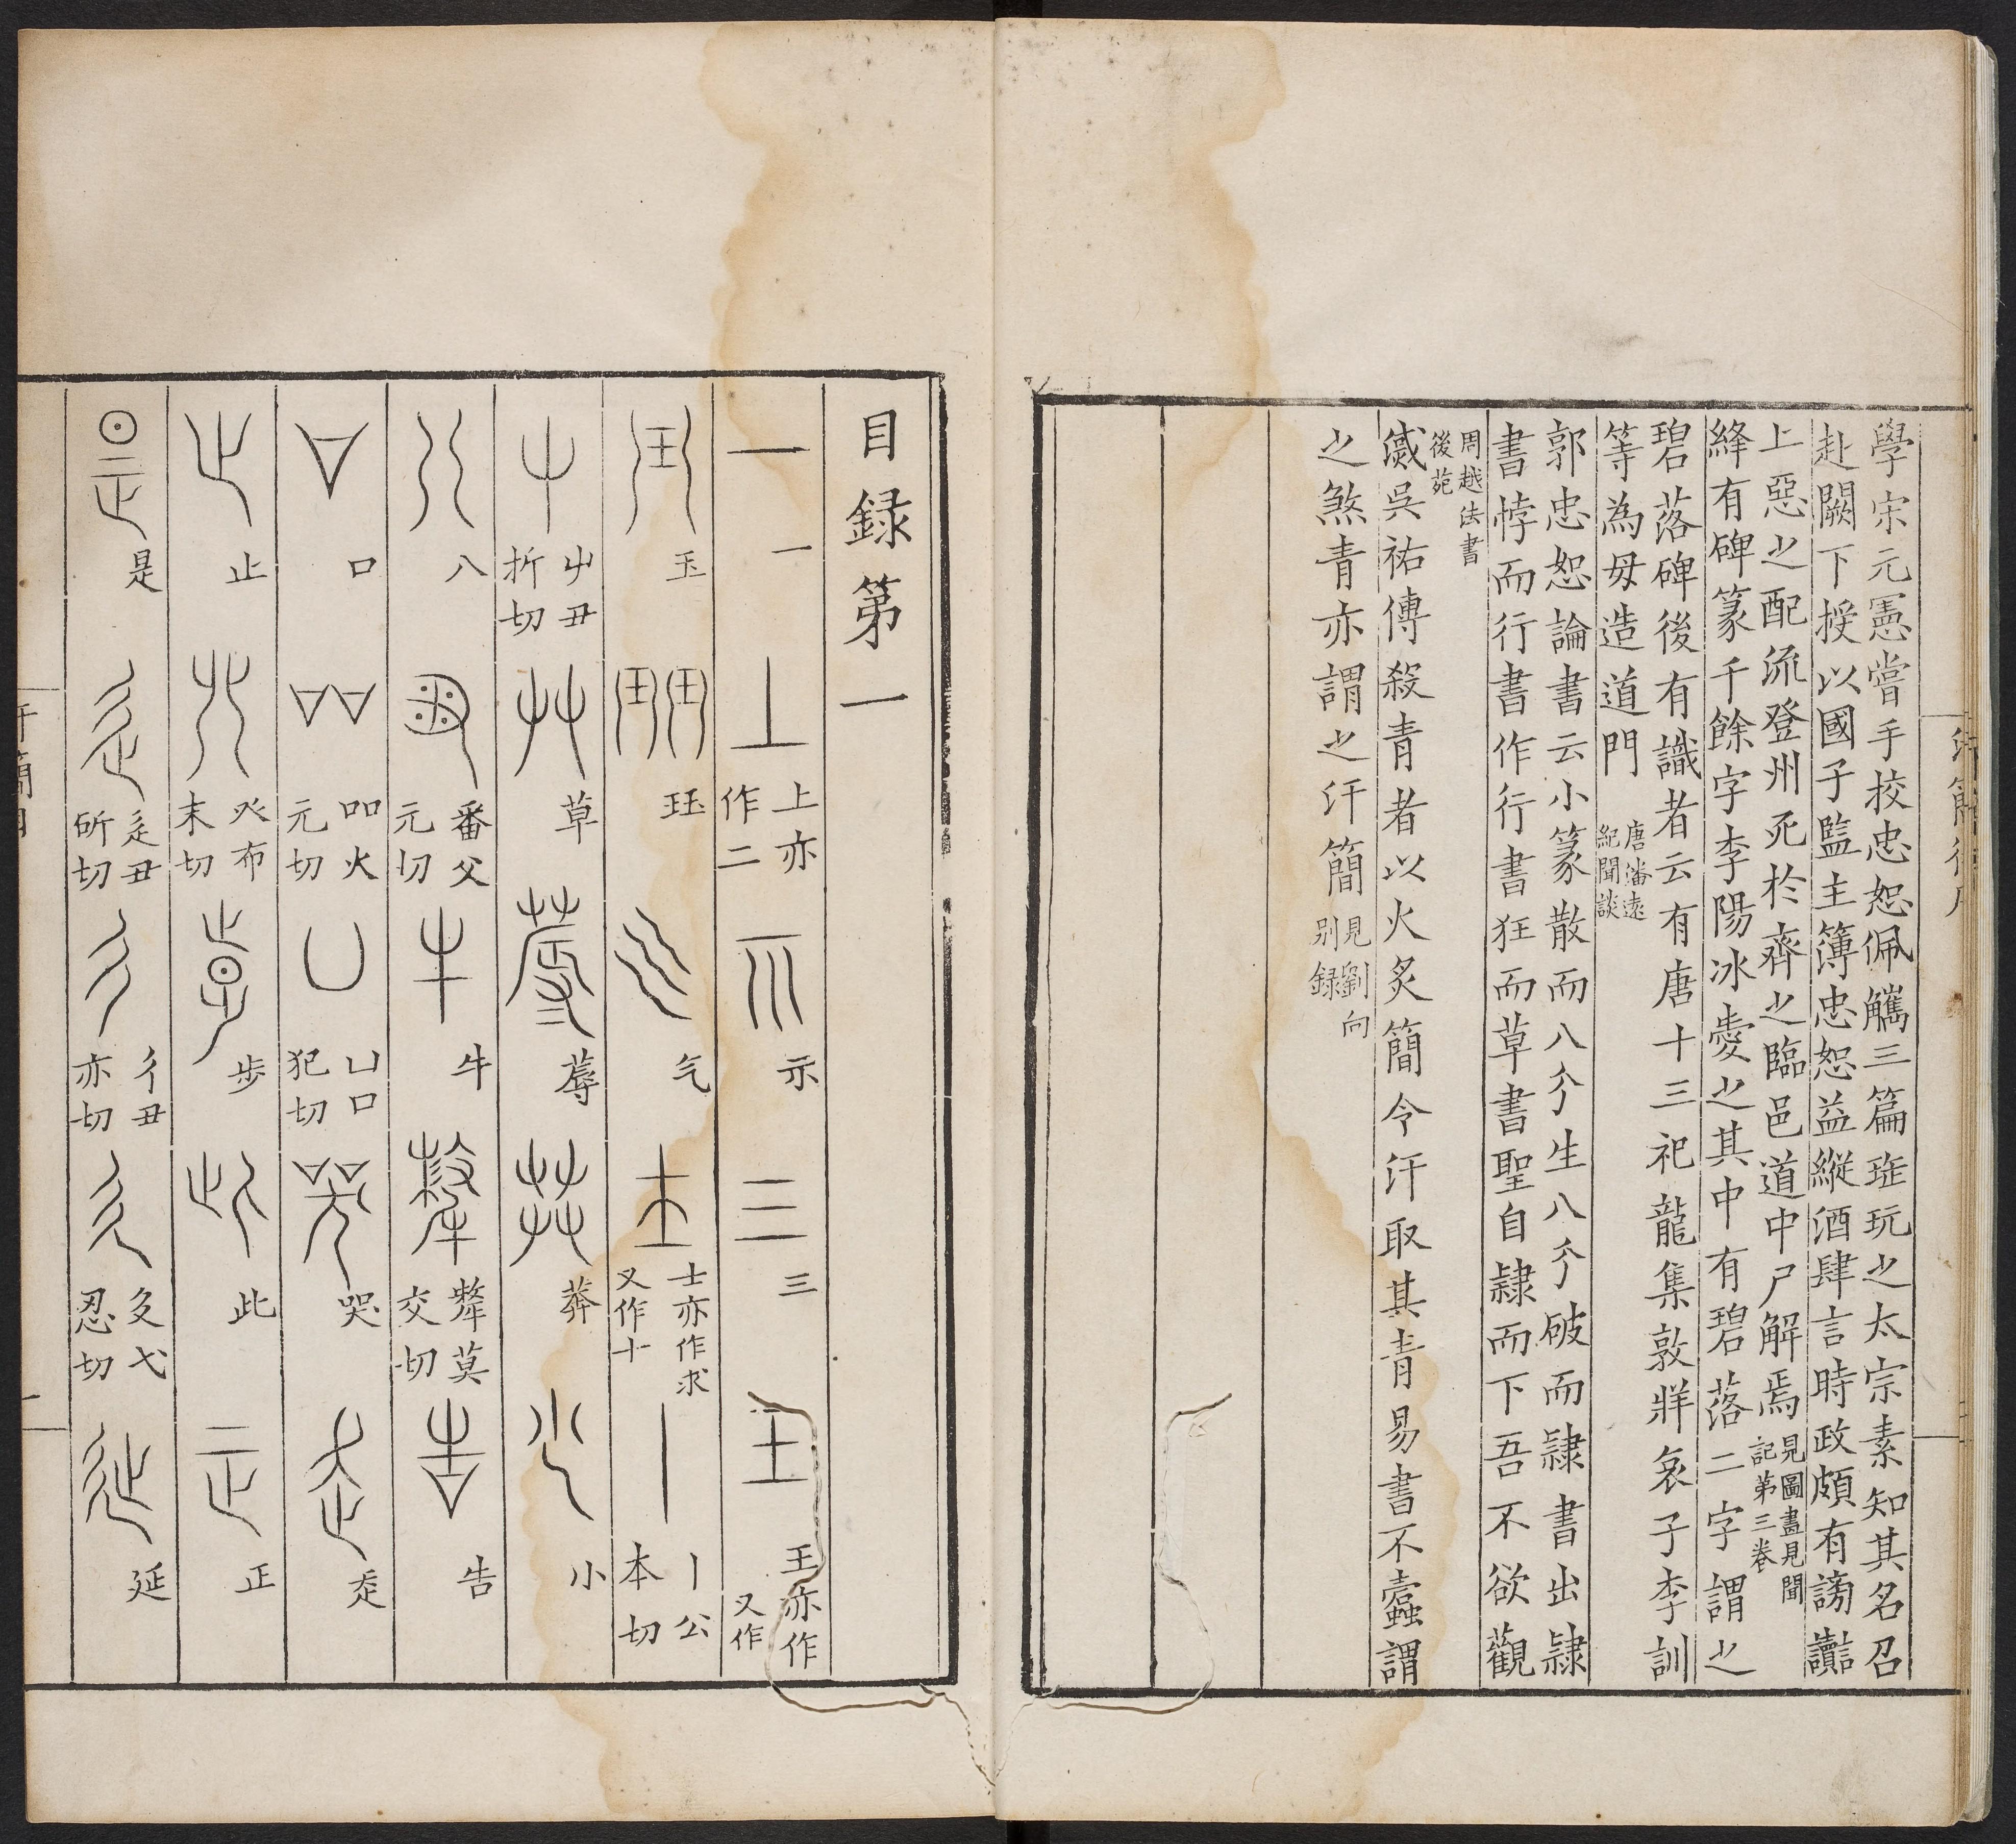 學宋元憲嘗手校忠恕佩觿三篇珤玩之太宗素知其名召
赴闕下授以國子監主簿忠恕益縱酒肆言時政頗有謗讟
上惡之配流登州死於齊之臨邑道中尸解焉見圖畫見聞記第三卷
絳有碑篆千餘字李陽冰愛之其中有碧落二字謂之
碧落碑後有識者云有唐十三祀龍集敦牂哀子李訓
等為毋造道門唐潘遠紀聞談
郭忠恕論書云小篆散而八分生八分破而隸書出隸
書悖而行書作行書狂而草書聖自隸而下吾不欲觀
周越法書後苑
吳祐傳殺青者以火炙簡令汗取其青易書不蠹謂
之煞青亦謂之汗簡見劉向别録
目録第一
一 上亦作二 示 三 王亦作又作
玉 珏 气 士亦作求又作十 丨公本切
屮丑折切 草 蓐 茻 小
八 番父元切 牛 犛莫交切 告
口 吅火元切 凵口犯切 哭 走
止 癶布末切 步 此 正
是 辵丑斫切 彳丑亦切 廴弋忍切 延